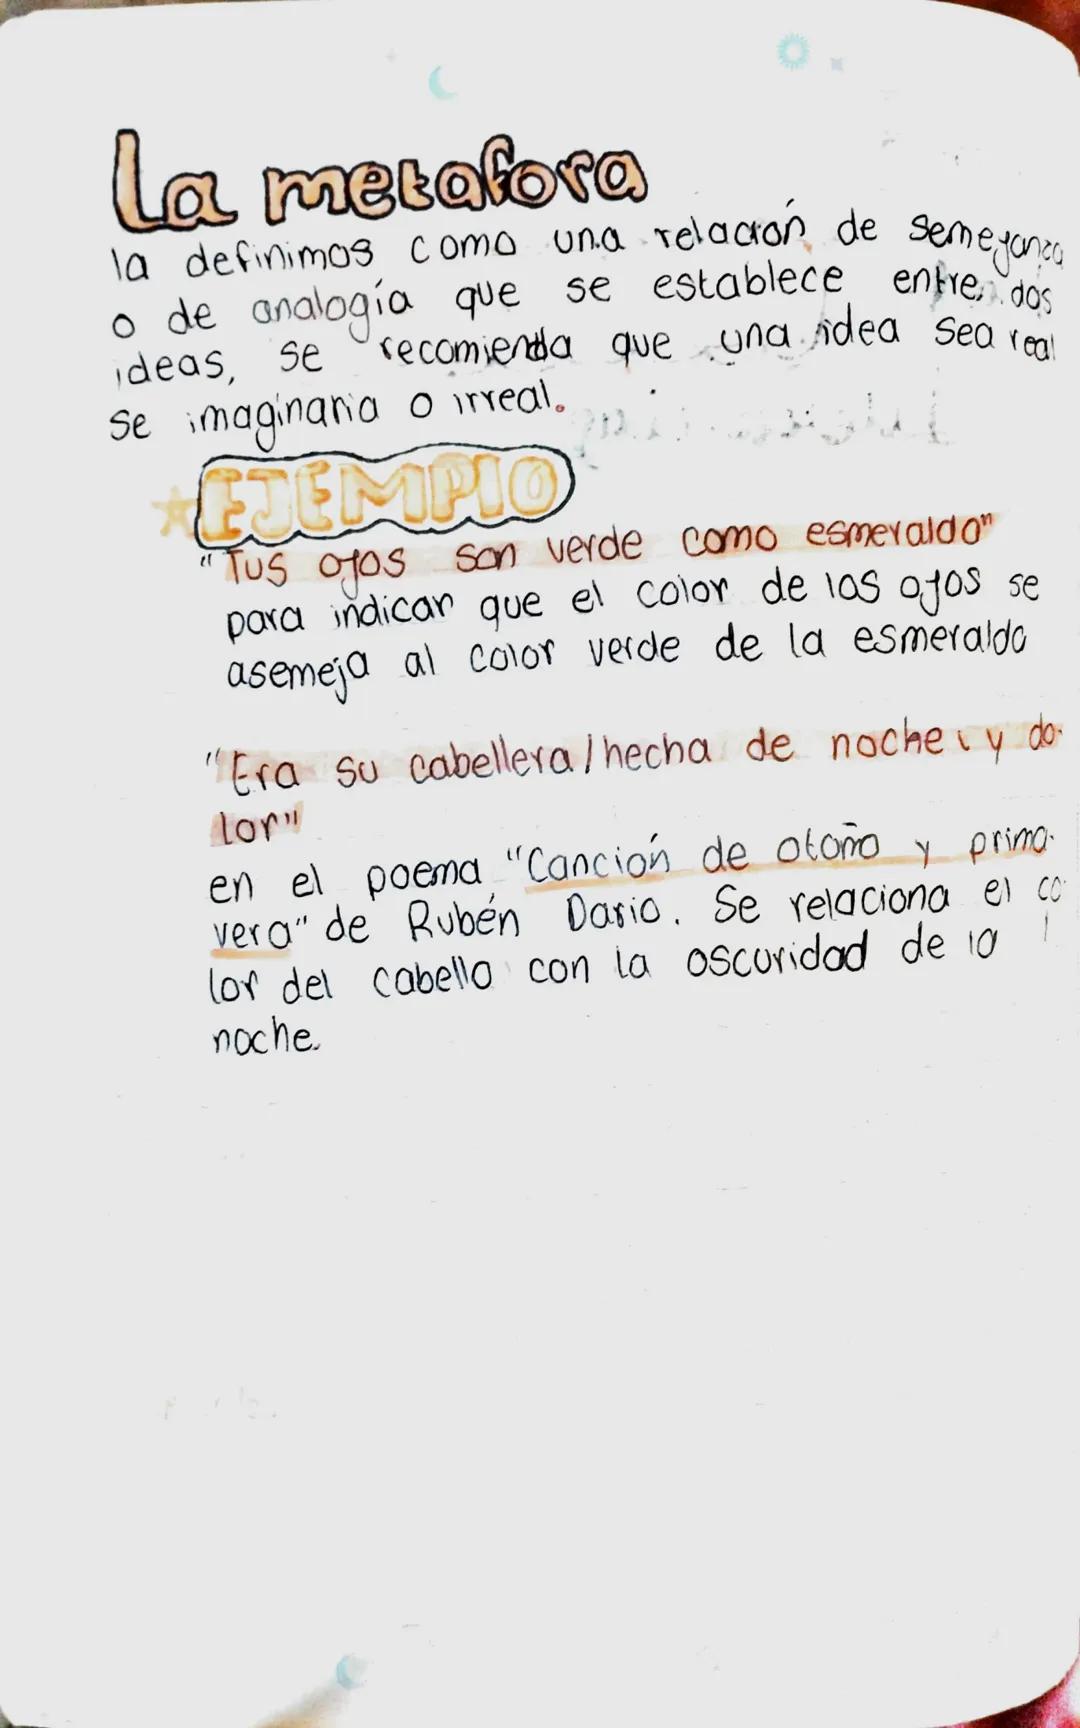 La metafora
la definimos como una relación de semejanza
o de analogía que se establece entre dos
ideas, se recomienda que una idea sea real
se imaginaria o irreal.
EJEMPlO
"Tus ojos son verde como esmeralda"
para indicar que el color de los ojos se
asemeja al color verde de la esmeralda
"Era su cabellera/hecha de noche y do-
lor"
en el poema "Canción de otoño y prima-
vera" de Rubén Dario. Se relaciona el co-
lor del cabello con la oscuridad de la
noche.